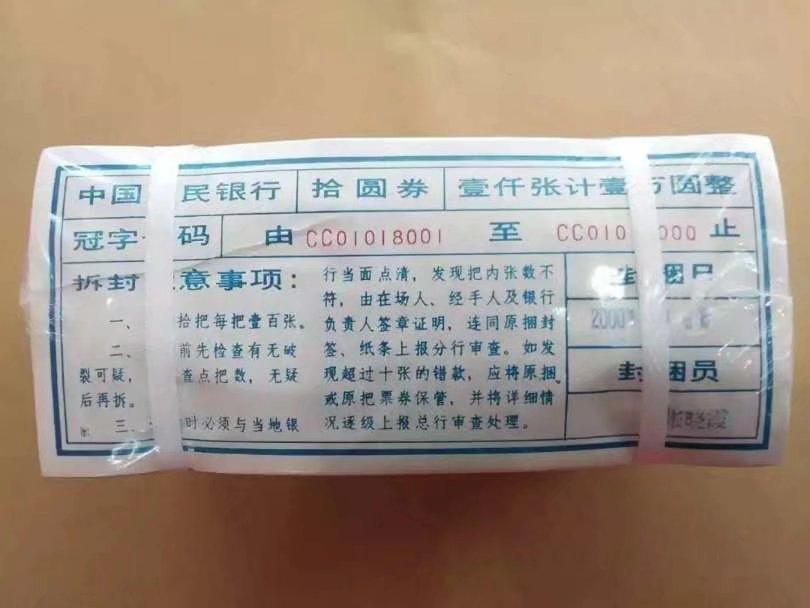 中国 民银行 拾圆券 壹仟张计壹万圆整
冠字 码 由 CC01018001 至 CC010 000 止
拆封 意事项：
一、 拾把每把壹百张。
二、 前先检查有无破
裂可疑， 查点把数，无疑
后再拆。
三、 时必须与当地银
行当面点清，发现把内张数不
符，由在场人、经手人及银行
负责人签章证明，连同原捆封
签、纸条上报分行审查。如发
现超过十张的错款，应将原捆
或原把票券保管，并将详细情
况逐级上报总行审查处理。
封 捆日
2000年
封 捆员